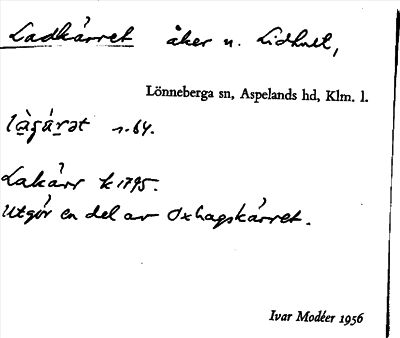 Ladkärret åker u. Lidhult,
Lönneberga sn, Aspelands hd, Klm. l.
s. 64.
Lakärr k 1795.
Utgör en del av Oxhagskärret.
Ivar Modéer 1956